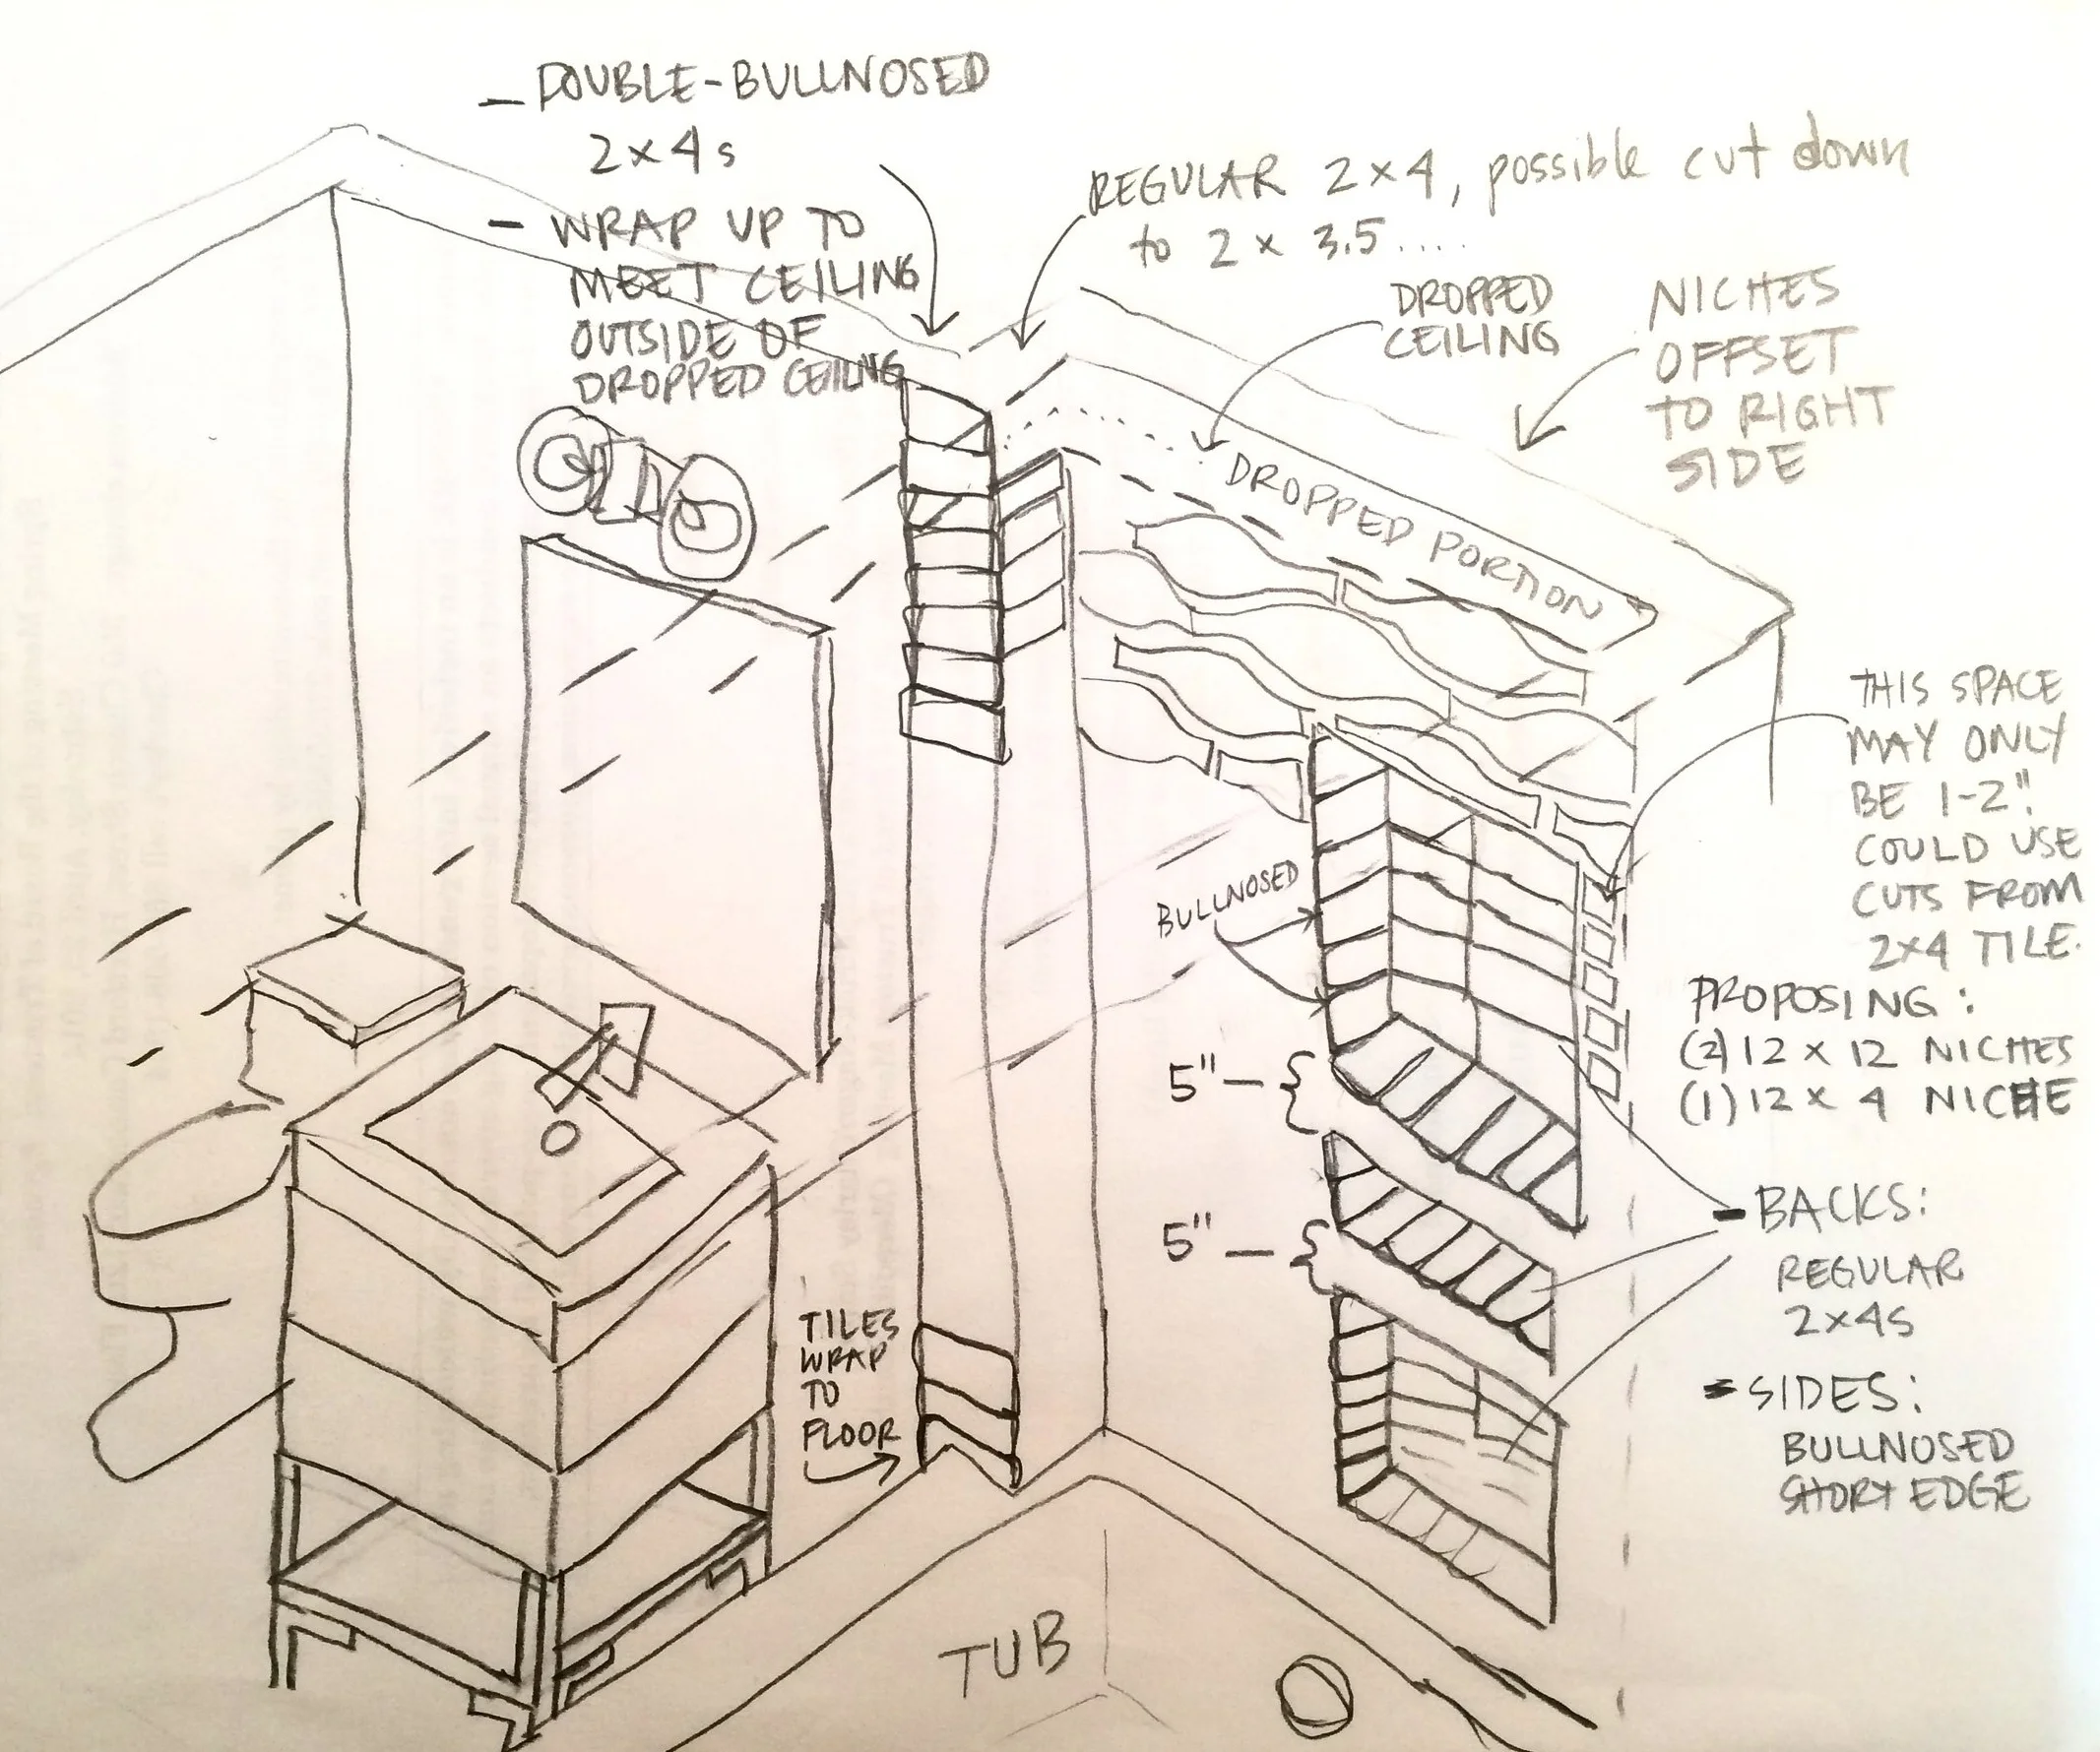 — DOUBLE-BULLNOSED
2x4s
— WRAP UP TO
MEET CEILING
OUTSIDE OF
DROPPED CEILING
REGULAR 2x4, possible cut down
to 2 x 3.5....
DROPPED
CEILING
NICHES
OFFSET
TO RIGHT
SIDE
DROPPED PORTION
THIS SPACE
MAY ONLY
BE 1-2".
COULD USE
CUTS FROM
2x4 TILE.
BULLNOSED
PROPOSING:
(2) 12 x 12 NICHES
(1) 12 x 4 NICHE
5" —
5" —
— BACKS:
REGULAR
2x4s
- SIDES:
BULLNOSED
SHORT EDGE
TILES
WRAP
TO
FLOOR
TUB